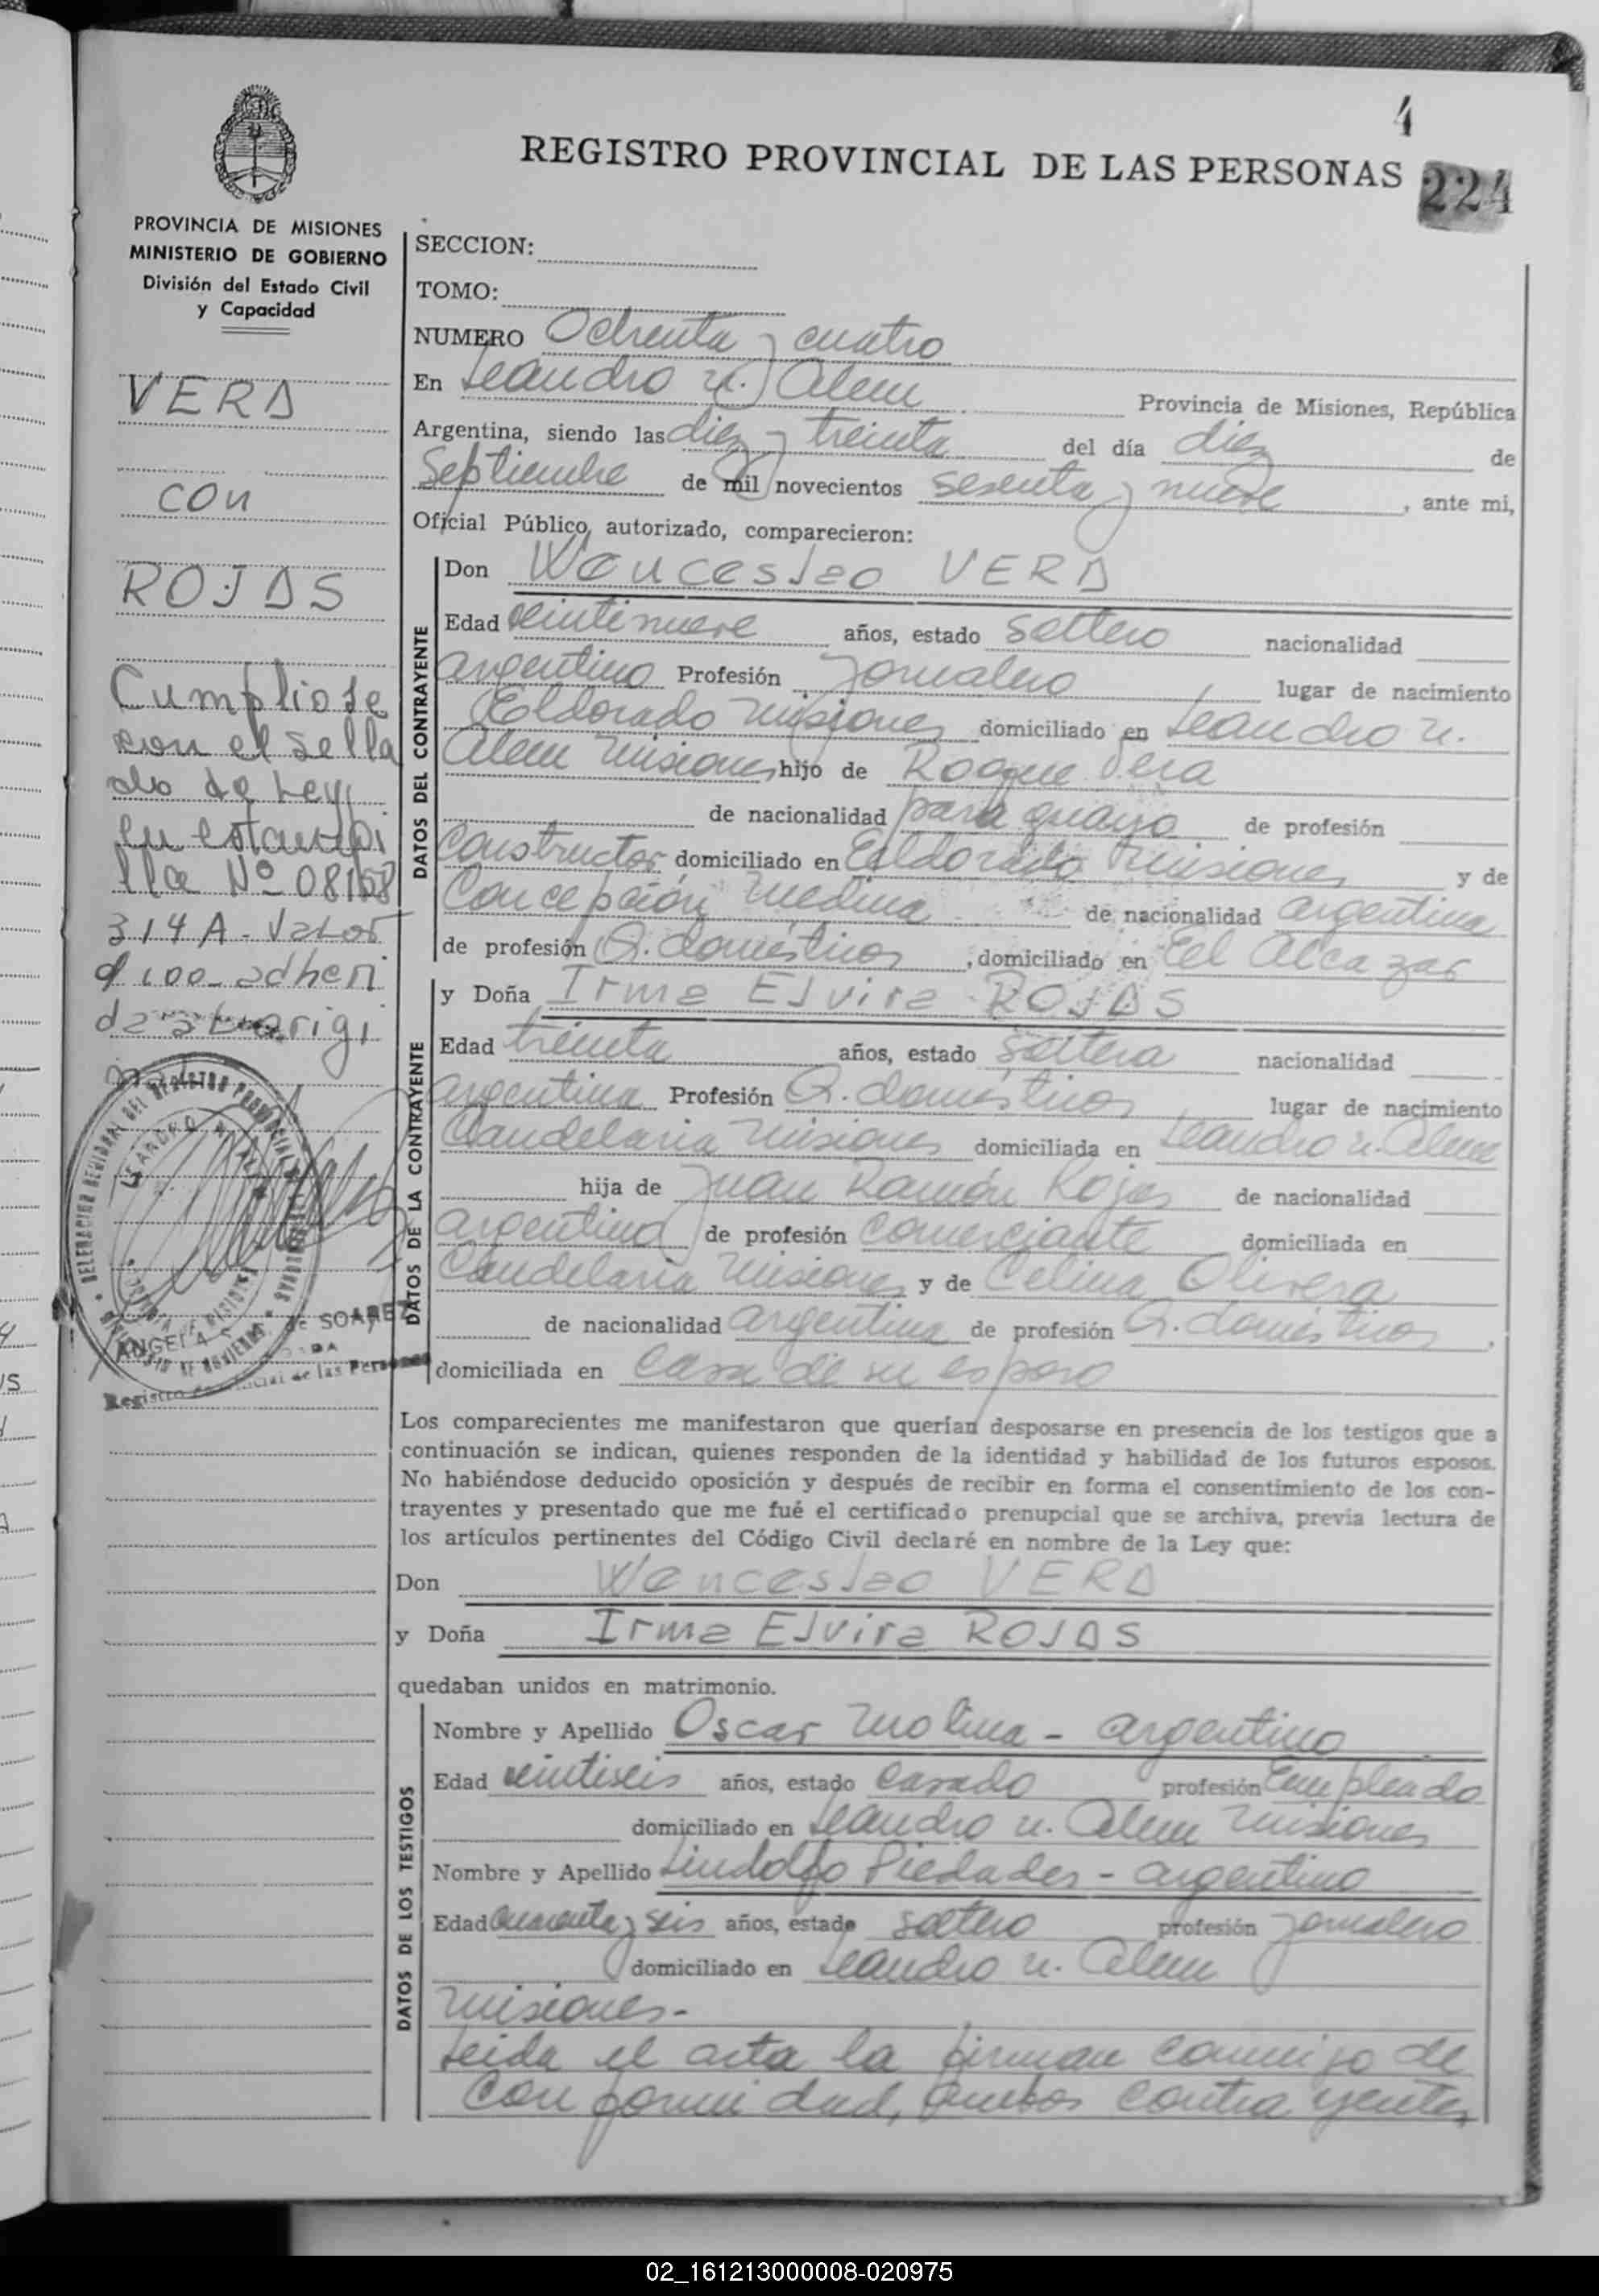 4
REGISTRO PROVINCIAL DE LAS PERSONAS
224
PROVINCIA DE MISIONES
MINISTERIO DE GOBIERNO
División del Estado Civil
y Capacidad
VERA
con
ROJAS
Cumpliose
con el sella
do de Ley
en estampi
lla Nº 08158
314 A - Valor
100 - adheri
da
origi
LEANDRO N. ALEM
ANGELA de SOAREZ
Registro de las Personas
SECCION:
TOMO:
NUMERO Ochenta y cuatro
En Leandro N. Alem Provincia de Misiones, República
Argentina, siendo las diez y treinta del día diez de
Septiembre de mil novecientos sesenta y nueve, ante mi,
Oficial Público, autorizado, comparecieron:
DATOS DEL CONTRAYENTE
Don Wencesleo VERA
Edad veintinueve años, estado soltero nacionalidad
argentino Profesión Jornalero, lugar de nacimiento
Eldorado Misiones domiciliado en Leandro N.
Alem Misiones hijo de Roque Vera
de nacionalidad paraguayo de profesión
Constructor, domiciliado en Eldorado Misiones y de
Concepción Medina de nacionalidad argentina
de profesión Q. domésticos, domiciliado en El Alcazar
DATOS DE LA CONTRAYENTE
y Doña Irma Elvira ROJAS
Edad treinta años, estado soltera nacionalidad
argentina Profesión Q. domésticos, lugar de nacimiento
Candelaria Misiones domiciliada en Leandro N. Alem
hija de Juan Ramón Rojas de nacionalidad
argentino de profesión comerciante domiciliada en
Candelaria Misiones y de Celina Olivera
de nacionalidad argentina de profesión Q. domésticos,
domiciliada en casa de su esposo
Los comparecientes me manifestaron que querían desposarse en presencia de los testigos que a
continuación se indican, quienes responden de la identidad y habilidad de los futuros esposos.
No habiéndose deducido oposición y después de recibir en forma el consentimiento de los con-
trayentes y presentado que me fué el certificado prenupcial que se archiva, previa lectura de
los artículos pertinentes del Código Civil declaré en nombre de la Ley que:
Don Wencesleo VERA
y Doña Irma Elvira ROJAS
quedaban unidos en matrimonio.
DATOS DE LOS TESTIGOS
Nombre y Apellido Oscar Molina - argentino
Edad veintiseis años, estado casado profesión Empleado
domiciliado en Leandro N. Alem Misiones
Nombre y Apellido Lindolfo Piedades - argentino
Edad cuarenta y seis años, estado soltero profesión Jornalero
domiciliado en Leandro N. Alem
Misiones.-
Leida el acta la firman conmigo de
conformidad, ambos contrayentes,
02_161213000008-020975